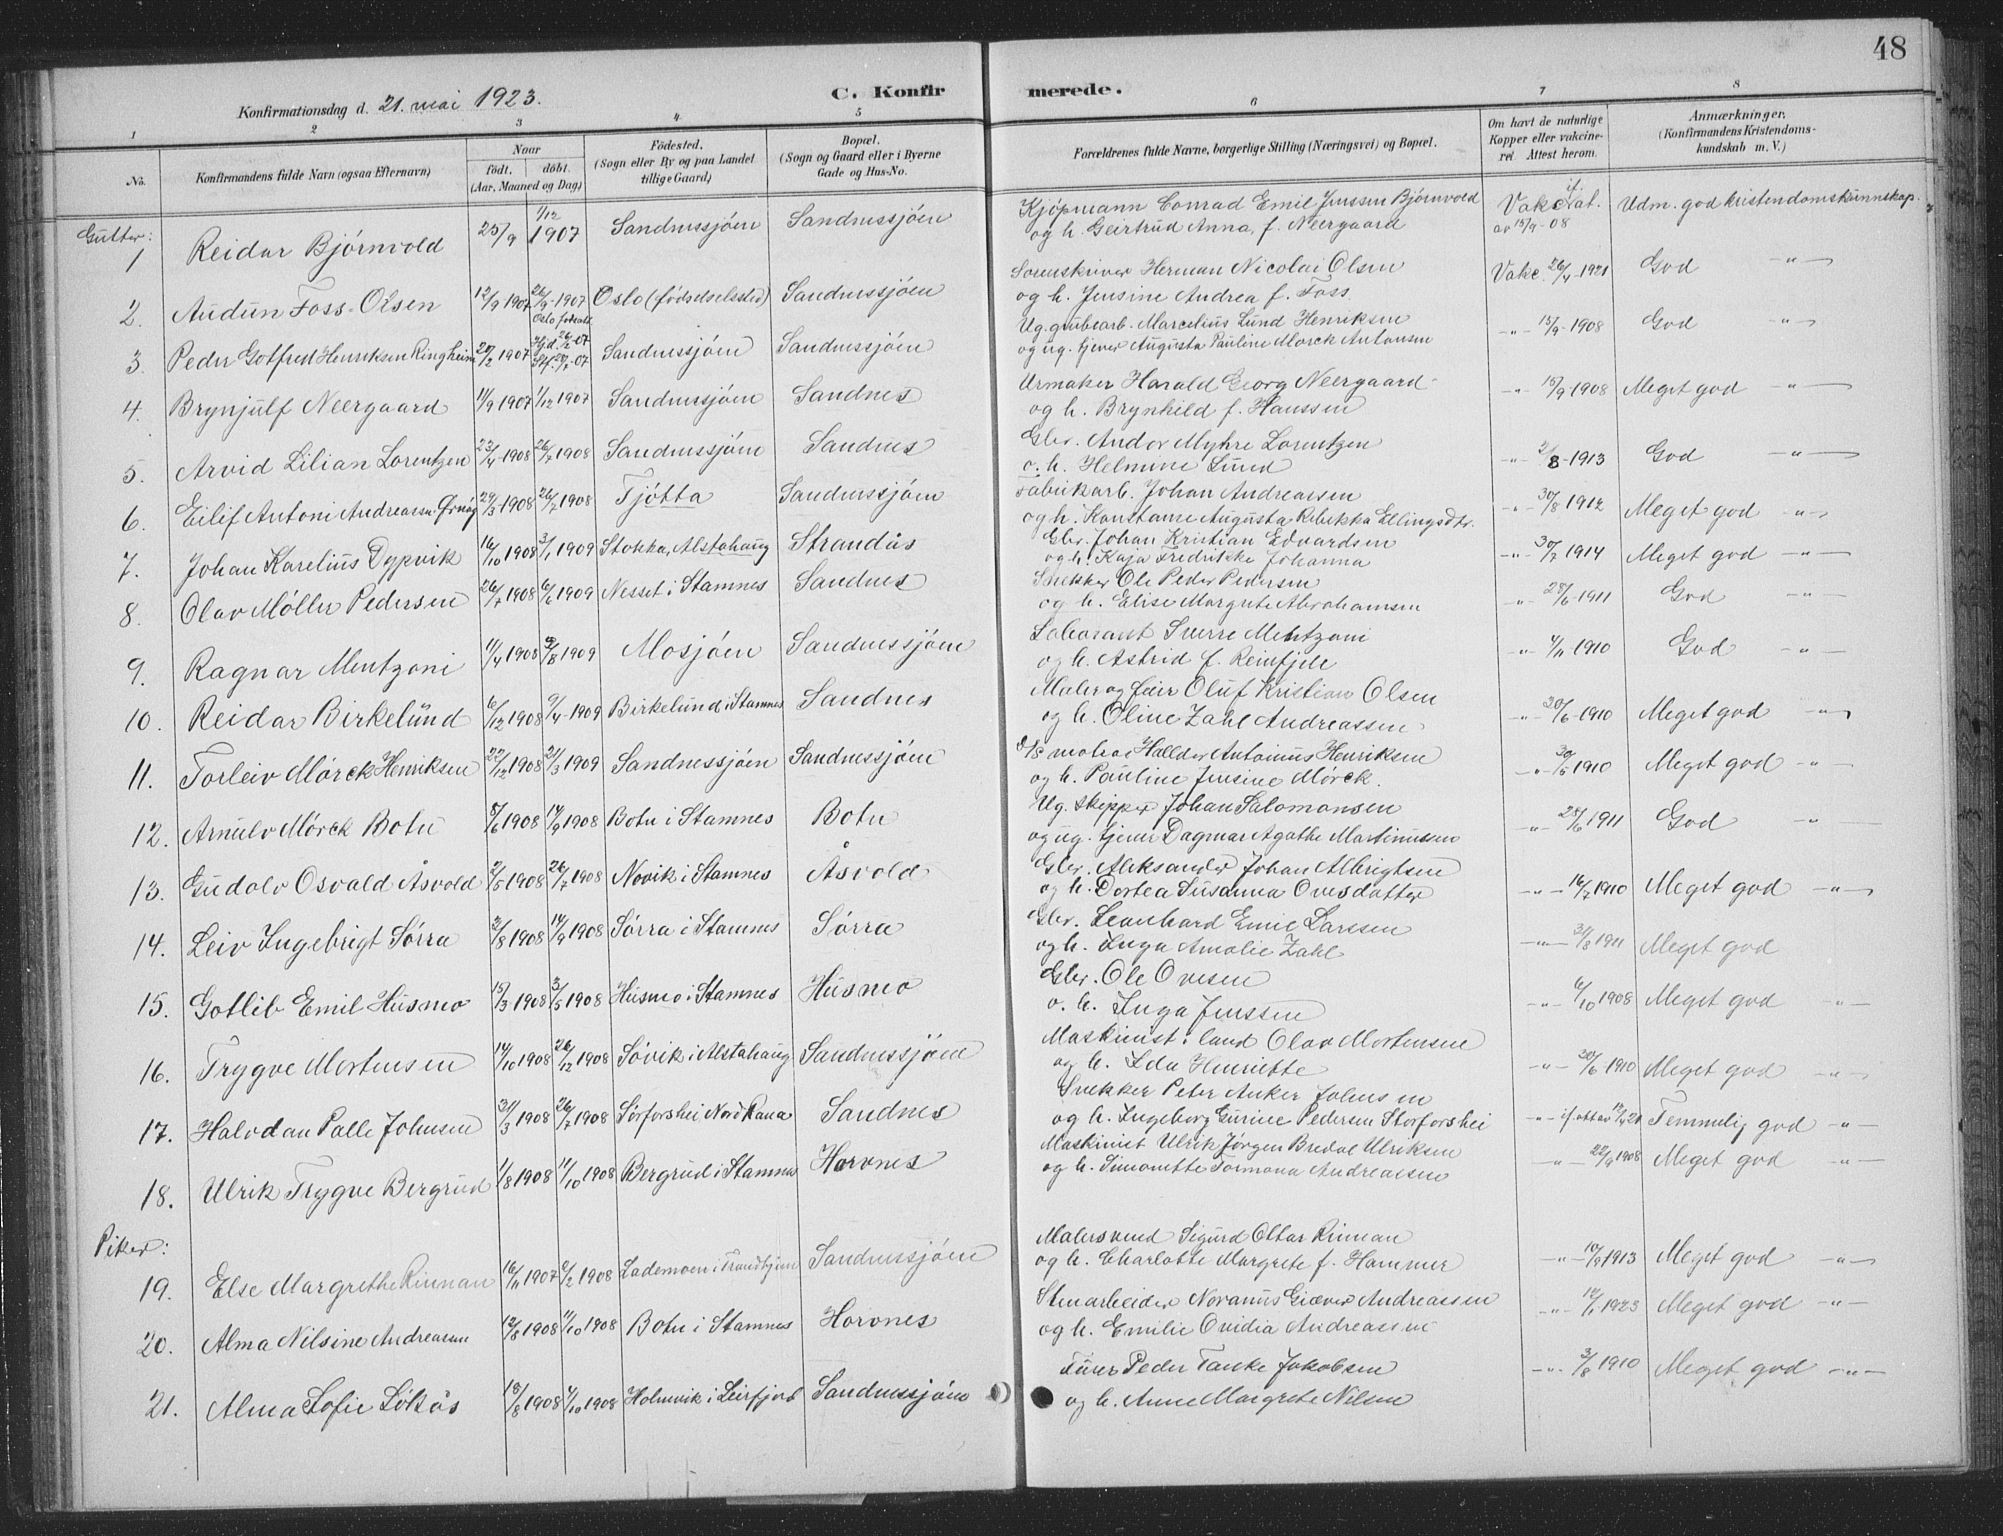 48
Konfirmationsdag d. 21. mai 1923.
C. Konfirmerede.
1 2 3 4 5 6 7 8
No.
Konfirmandens fulde Navn (ogsaa Efternavn)
Naar
født. døbt.
(Aar, Maaned og Dag)
Fødested.
(Sogn eller By og paa Landet
tillige Gaard)
Bopæl.
(Sogn og Gaard eller i Byerne
Gade og Hus-No.
Forældrenes fulde Navne, borgerlige Stilling (Næringsvei) og Bopæl.
Om havt de naturlige
Kopper eller vakcine-
ret Attest herom.
Anmærkninger.
(Konfirmandens Kristendoms-
kundskab m. V.)
Gutter:
1 Reidar Bjørnvold 25/9 1/12 1907 Sandnessjøen Sandnessjøen Kjøpmann Conrad Emil Jenssen Bjørnvold
og h. Geirtrud Anna, f. Neergaard Udm. god kristendomskunnskap.
2. Audun Foss-Olsen 12/9 1907 26/9-1907 Oslo (fødselssted) Sandnessjøen Sorenskriver Herman Nicolai Olsen
og h. Jensine Andrea f. Foss. Vakc. 26/4-1921 God -"-
3. Peder Gotfred Henriksen Ringheim 20/2 1907 Sandnessjøen Sandnessjøen Ug. grubearb. Marcelius Lund Henriksen
og ug. tjener Augusta Pauline Mørck Antonsen -"- 15/9-1908 God -"-
4. Brynjulf Neergaard 11/9 1907 1/12 1907 Sandnessjøen Sandnes Urmaker Harald Georg Neergaard
og h. Brynhild f. Hanssen -"- 15/9 1908 Meget god -"-
5. Arvid Lilian Lorentzen 23/4-1908 26/7 1908 Sandnessjøen Sandnes Gbr. Andor Myhre Lorentzen
o. h. Helmine Lund -"- 2/8-1913 God -"-
6. Eilif Antoni Andreassen 29/3-1908 26/7 1908 Tjøtta Sandnessjøen Fabrikarb. Johan Andreassen
og h. Konstanse Augusta Rebekka Ellingsdtr. -"- 30/8 1912 Meget god -"-
7. Johan Karelius Dypvik 16/10 1908 3/1 1909 Stokka, Alstahaug Strandås Gbr. Johan Kristian Edvardsen
og h. Kaja Fredrikke Johanna -"- 30/7 1914 Meget god -"-
8. Olav Møller Pedersen 26/7 1908 6/6 1909 Nesset i Stamnes Sandnes Snekker Ole Peder Pedersen
og h. Elise Margrete Abrahamsen -"- 28/6-1911 God -"-
9. Ragnar Mentzoni 11/4 1908 8 1909 Mosjøen Sandnessjøen Laborant Sverre Mentzoni
og h. Astrid f. Reinfjell -"- 4/11 1910 God -"-
10. Reidar Birkelund 6/12 1908 9/4-1909 Birkelund i Stamnes Sandnes Maler og Oluf Kristian Olsen
og h. Oline Zahl Andreassen -"- 30/6-1910 Meget god -"-
11. Torleiv Mørck Henriksen 22/12 1908 21/3 1909 Sandnessjøen Sandnessjøen Halldor Antonius Henriksen
og h. Pauline Jensine Mørck. -"- 1910 Meget god -"-
12. Arnulv Mørck Botn 8/6 1908 14/9 1908 Botn i Stamnes Botn Ug. skipper Johan Salomonsen
og ug. tjener Dagmar Agathe Martinussen -"- 28/6 1911 God -"-
13. Gudolv Osvald Åsvold 2/5 1908 26/7 1908 Novik i Stamnes Åsvold Gbr. Aleksander Johan Albrigtsen
og h. Dortea Susanna Ovesdatter -"- 16/7 1910 Meget god -"-
14. Leiv Ingebrigt Sørra 2/8 1908 14/9 1908 Sørra i Stamnes Sørra Gbr. Leonhard Emil Larssen
og h. Inga Amalie Zahl -"- 31/8 1911 Meget god
15. Gotlib Emil Husmo 15/3 1908 3/5 1908 Husmo i Stamnes Husmo Gbr. Ole Ovesen
o. h. Inga Jenssen -"- 6/10 1908 Meget god -"-
16. Trygve Mortensen 14/10 1908 26/12 1908 Søvik i Alstahaug Sandnessjøen Maskinist i land Olav Mortensen
og h. Ida Henriette -"- 30/6 1910 Meget god -"-
17. Halvdan Palle Johnsen 31/3 1908 26/7 1908 Nord Rana Sandnes Snekker Peter Anker Johnsen
og h. Ingeborg Gurine Pedersen Storforshei Temmelig god -"-
18. Ulrik Trygve Bergrud 1/8 1908 11/10 1908 Bergrud i Stamnes Horvnes Maskinist Ulrik Jørgen Bredal Ulriksen
og h. Simonette Tormona Andreassen -"- 22/9 1908 Meget god -"-
Piker:
19. Else Margrethe Rinnan 16/11 1907 9/2 1908 Lademoen i Trondhjem Sandnessjøen Malersvend Sigurd Ottar Rinnan
og h. Charlotte Margrete f. Hammer -"- 10/9 1913 Meget god -"-
20. Alma Nilsine Andreassen 12/8 1908 11/10 1908 Botn i Stamnes Horvnes Stenarbeider Novanus Giæver Andreassen
og h. Emilie Ovidia Andreassen -"- 1923 Meget god -"-
21. Alma Sofie Løkås 13/8 1908 4/10 1908 Holmvik i Leirfjord Sandnessjøen Fører Peder Tanke Jakobsen
og h. Anne Margrete Nilsen -"- 3/8 1910 Meget god -"-